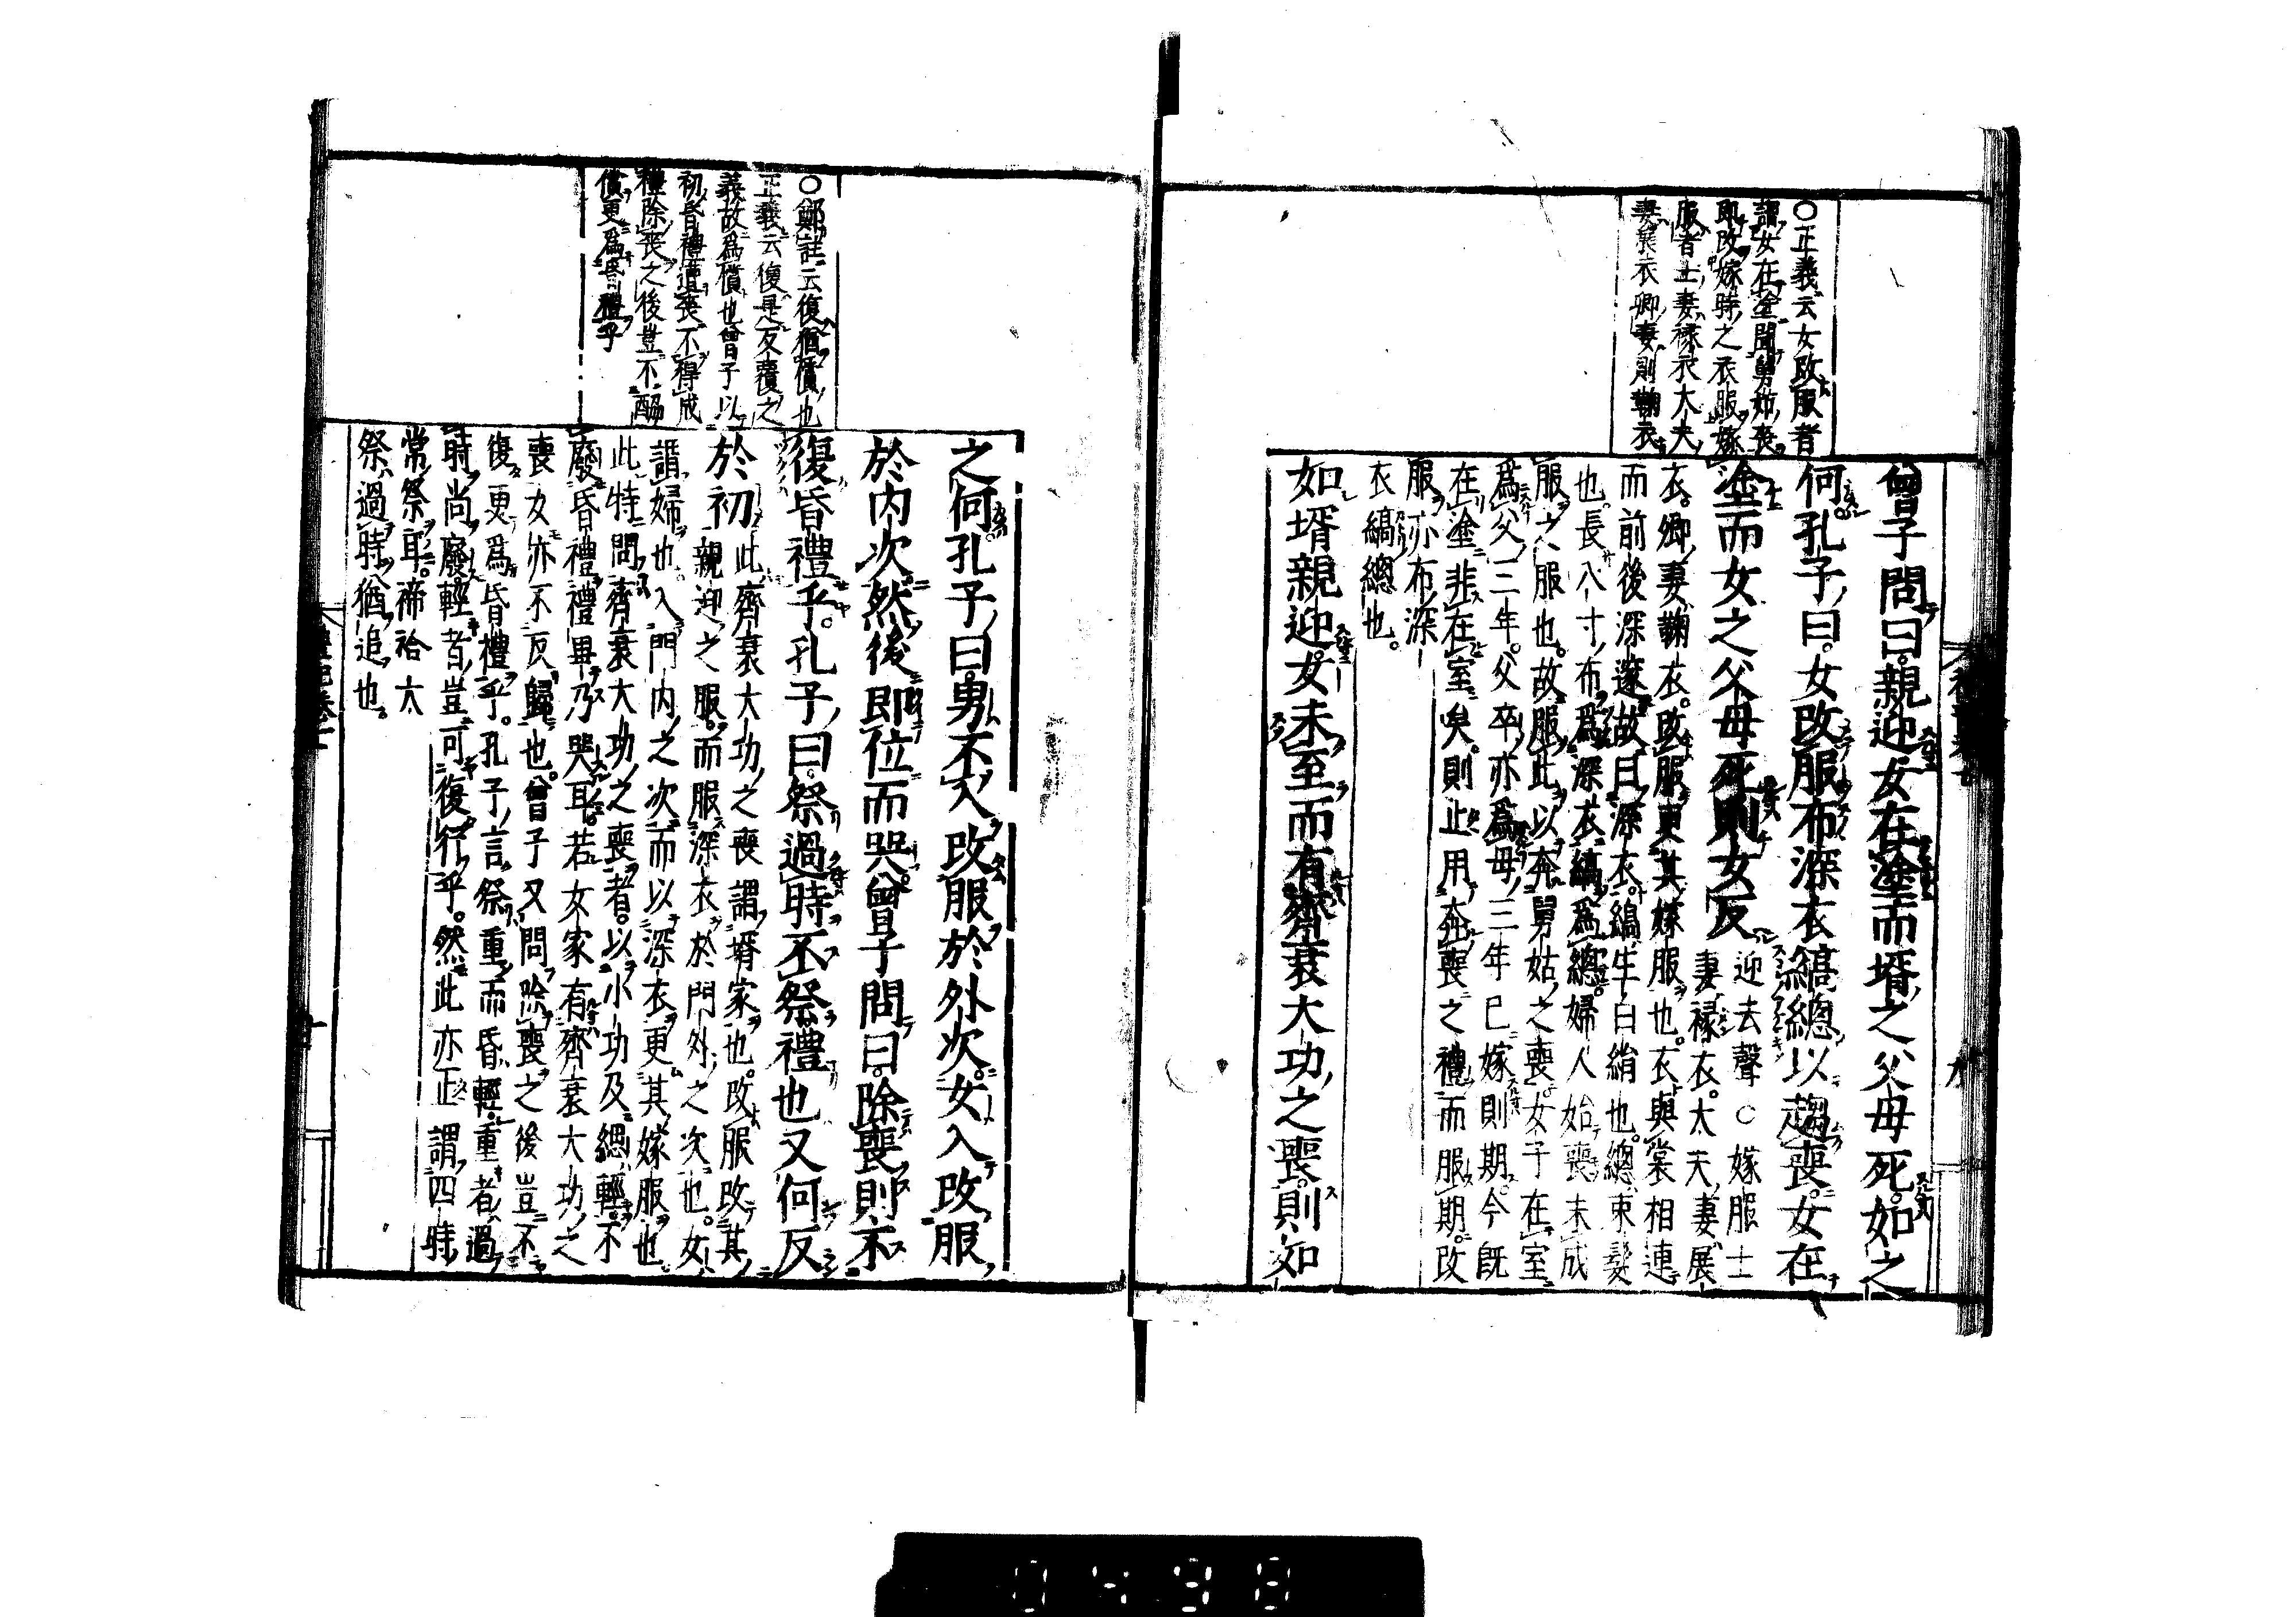 〇正義云女改服者
謂女在塗聞舅姑喪
即改嫁時之衣服嫁
服者士妻褖衣大夫
妻展衣卿妻則鞠衣
曾子問曰親迎女在塗而壻之父母死如之
何孔子曰女改服布深衣縞總以趨喪女在
塗而女之父母死則女反
迎去聲〇嫁服士
妻褖衣大夫妻展
衣卿妻鞠衣改服更其嫁服也衣與裳相連
而前後深邃故曰深衣縞生白絹也總束髮
也長八寸布爲深衣縞爲總婦人始喪未成
服之服也故服此以奔舅姑之喪女子在室
爲父三年父卒亦爲母三年已嫁則期今既
在塗非在室矣則止用奔喪之禮而服期改
服亦布深
衣縞總也
如壻親迎女未至而有齊衰大功之喪則如
〇鄭註云復猶償也
正義云復是反覆之
義故爲償也曾子以
初昏禮遭喪不得成
禮除喪之後豈不酬
償更爲昏禮乎
之何孔子曰男不入改服於外次女入改服
於内次然後即位而哭曾子問曰除喪則不
復昏禮乎孔子曰祭過時不祭禮也又何反
於初
此齊衰大功之喪謂壻家也改服改其
親迎之服而服深衣於門外之次也女
謂婦也入門内之次而以深衣更其嫁服也
此特問齊衰大功之喪者以小功及緦輕不
廢昏禮禮畢乃哭耳若女家有齊衰大功之
喪女亦不反歸也曾子又問除喪之後豈不
復更爲昏禮乎孔子言祭重而昏輕重者過
時尚廢輕者豈可復行乎然此亦止謂四時
常祭耳禘祫大
祭過時猶追也